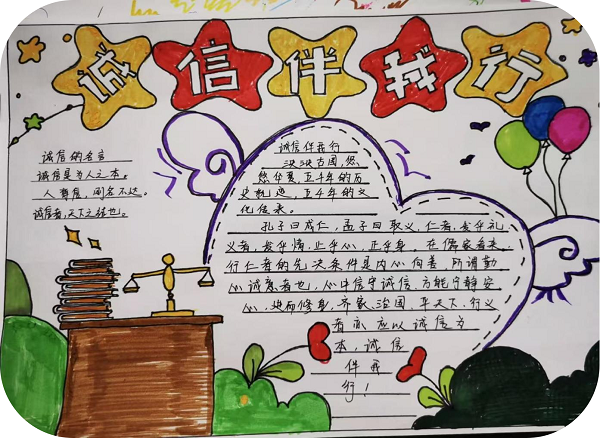 诚信伴我行
诚信的名言
诚信是为人之本。
人尊信,闻名不达。
诚信者,天下之结也。
诚信伴我行
泱泱古国,悠
悠华夏,五千年的历
史轨迹,五千年的文
化传承。
孔子曰成仁,孟子曰取义,仁者,发乎礼
义者,发乎情,止乎心,正乎身,在儒家看来,
行仁者的先决条件是内心向善,所谓勤
心诚意者也,心中信守诚信,方能宁静安
心,进而修身,齐家,治国,平天下,行义
者亦应以诚信为
本,诚信
伴我
行!